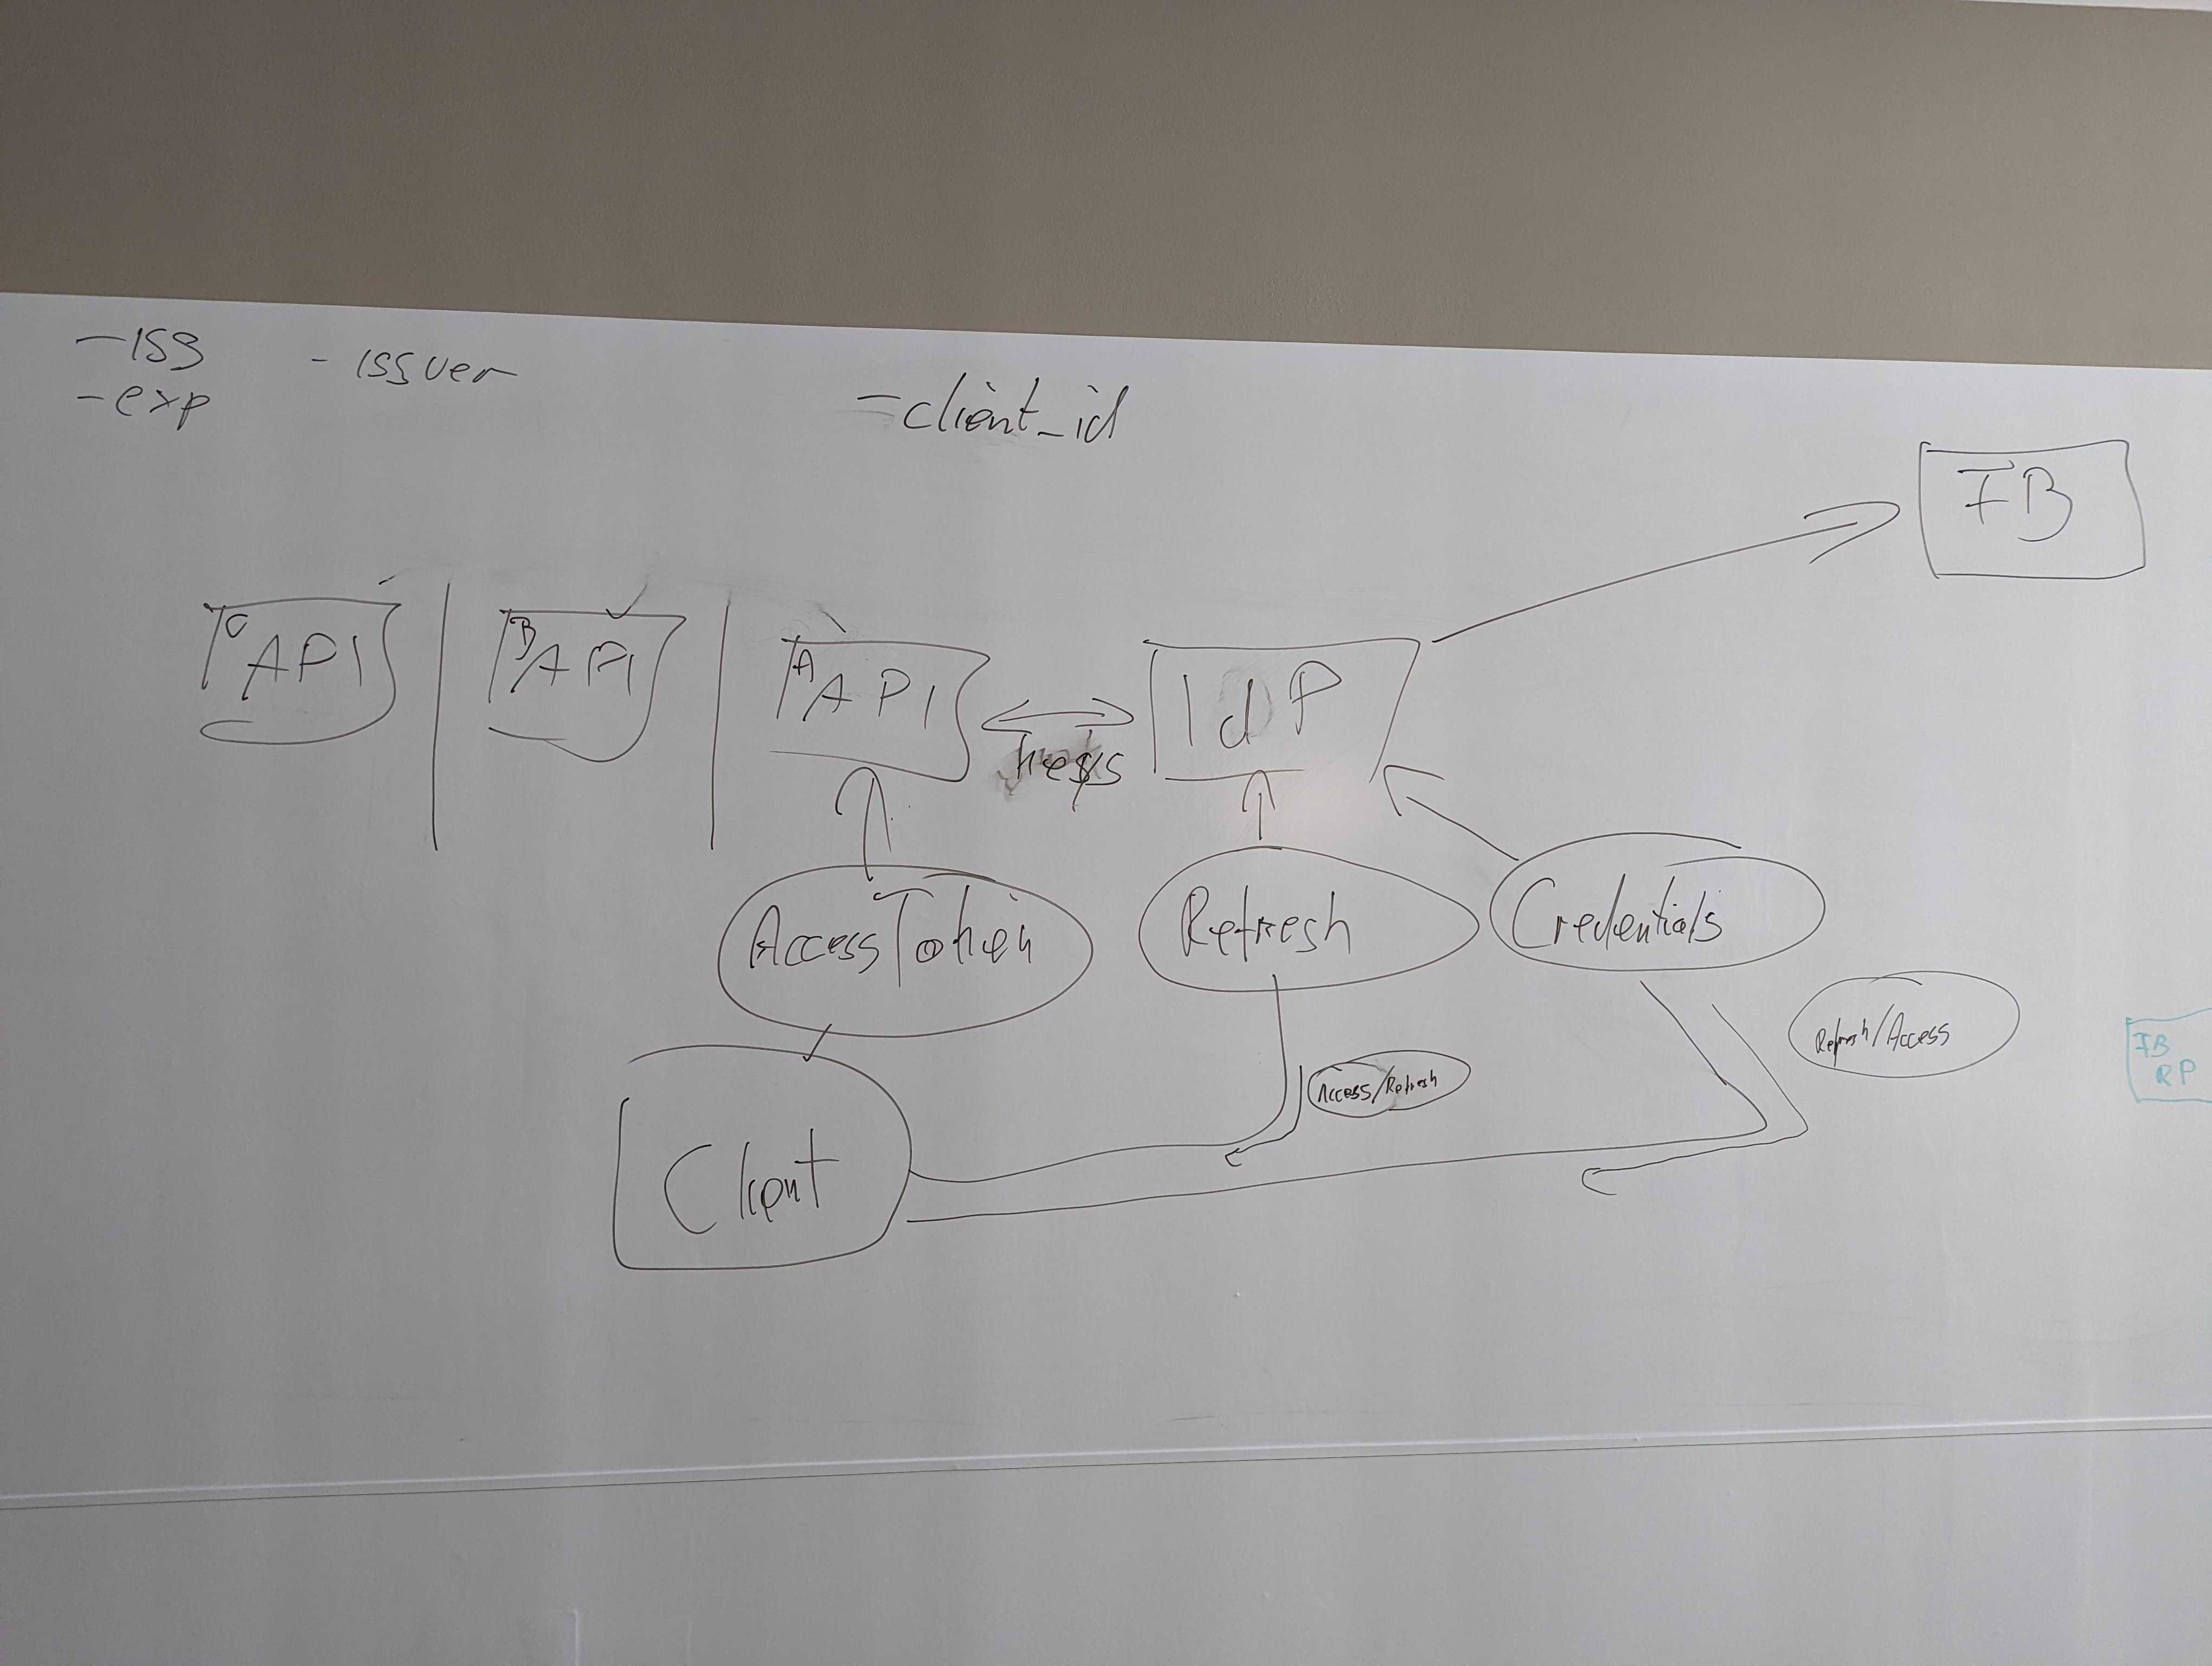 -iss
-exp
- issuer
-client_id
FB
C API
B API
A API
IdP
keys
Access Token
Refresh
Credentials
Refresh/Access
Access/Refresh
FB
RP
Client